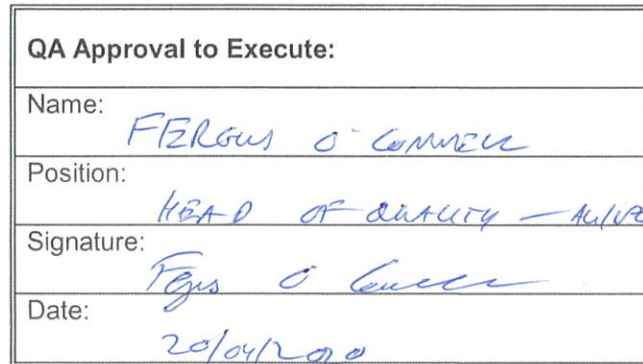 QA Approval to Execute:
Name:
FERGUS O'CONNELL
Position:
HEAD OF QUALITY —
Signature:
Fergus O Connell
Date:
20/04/2020